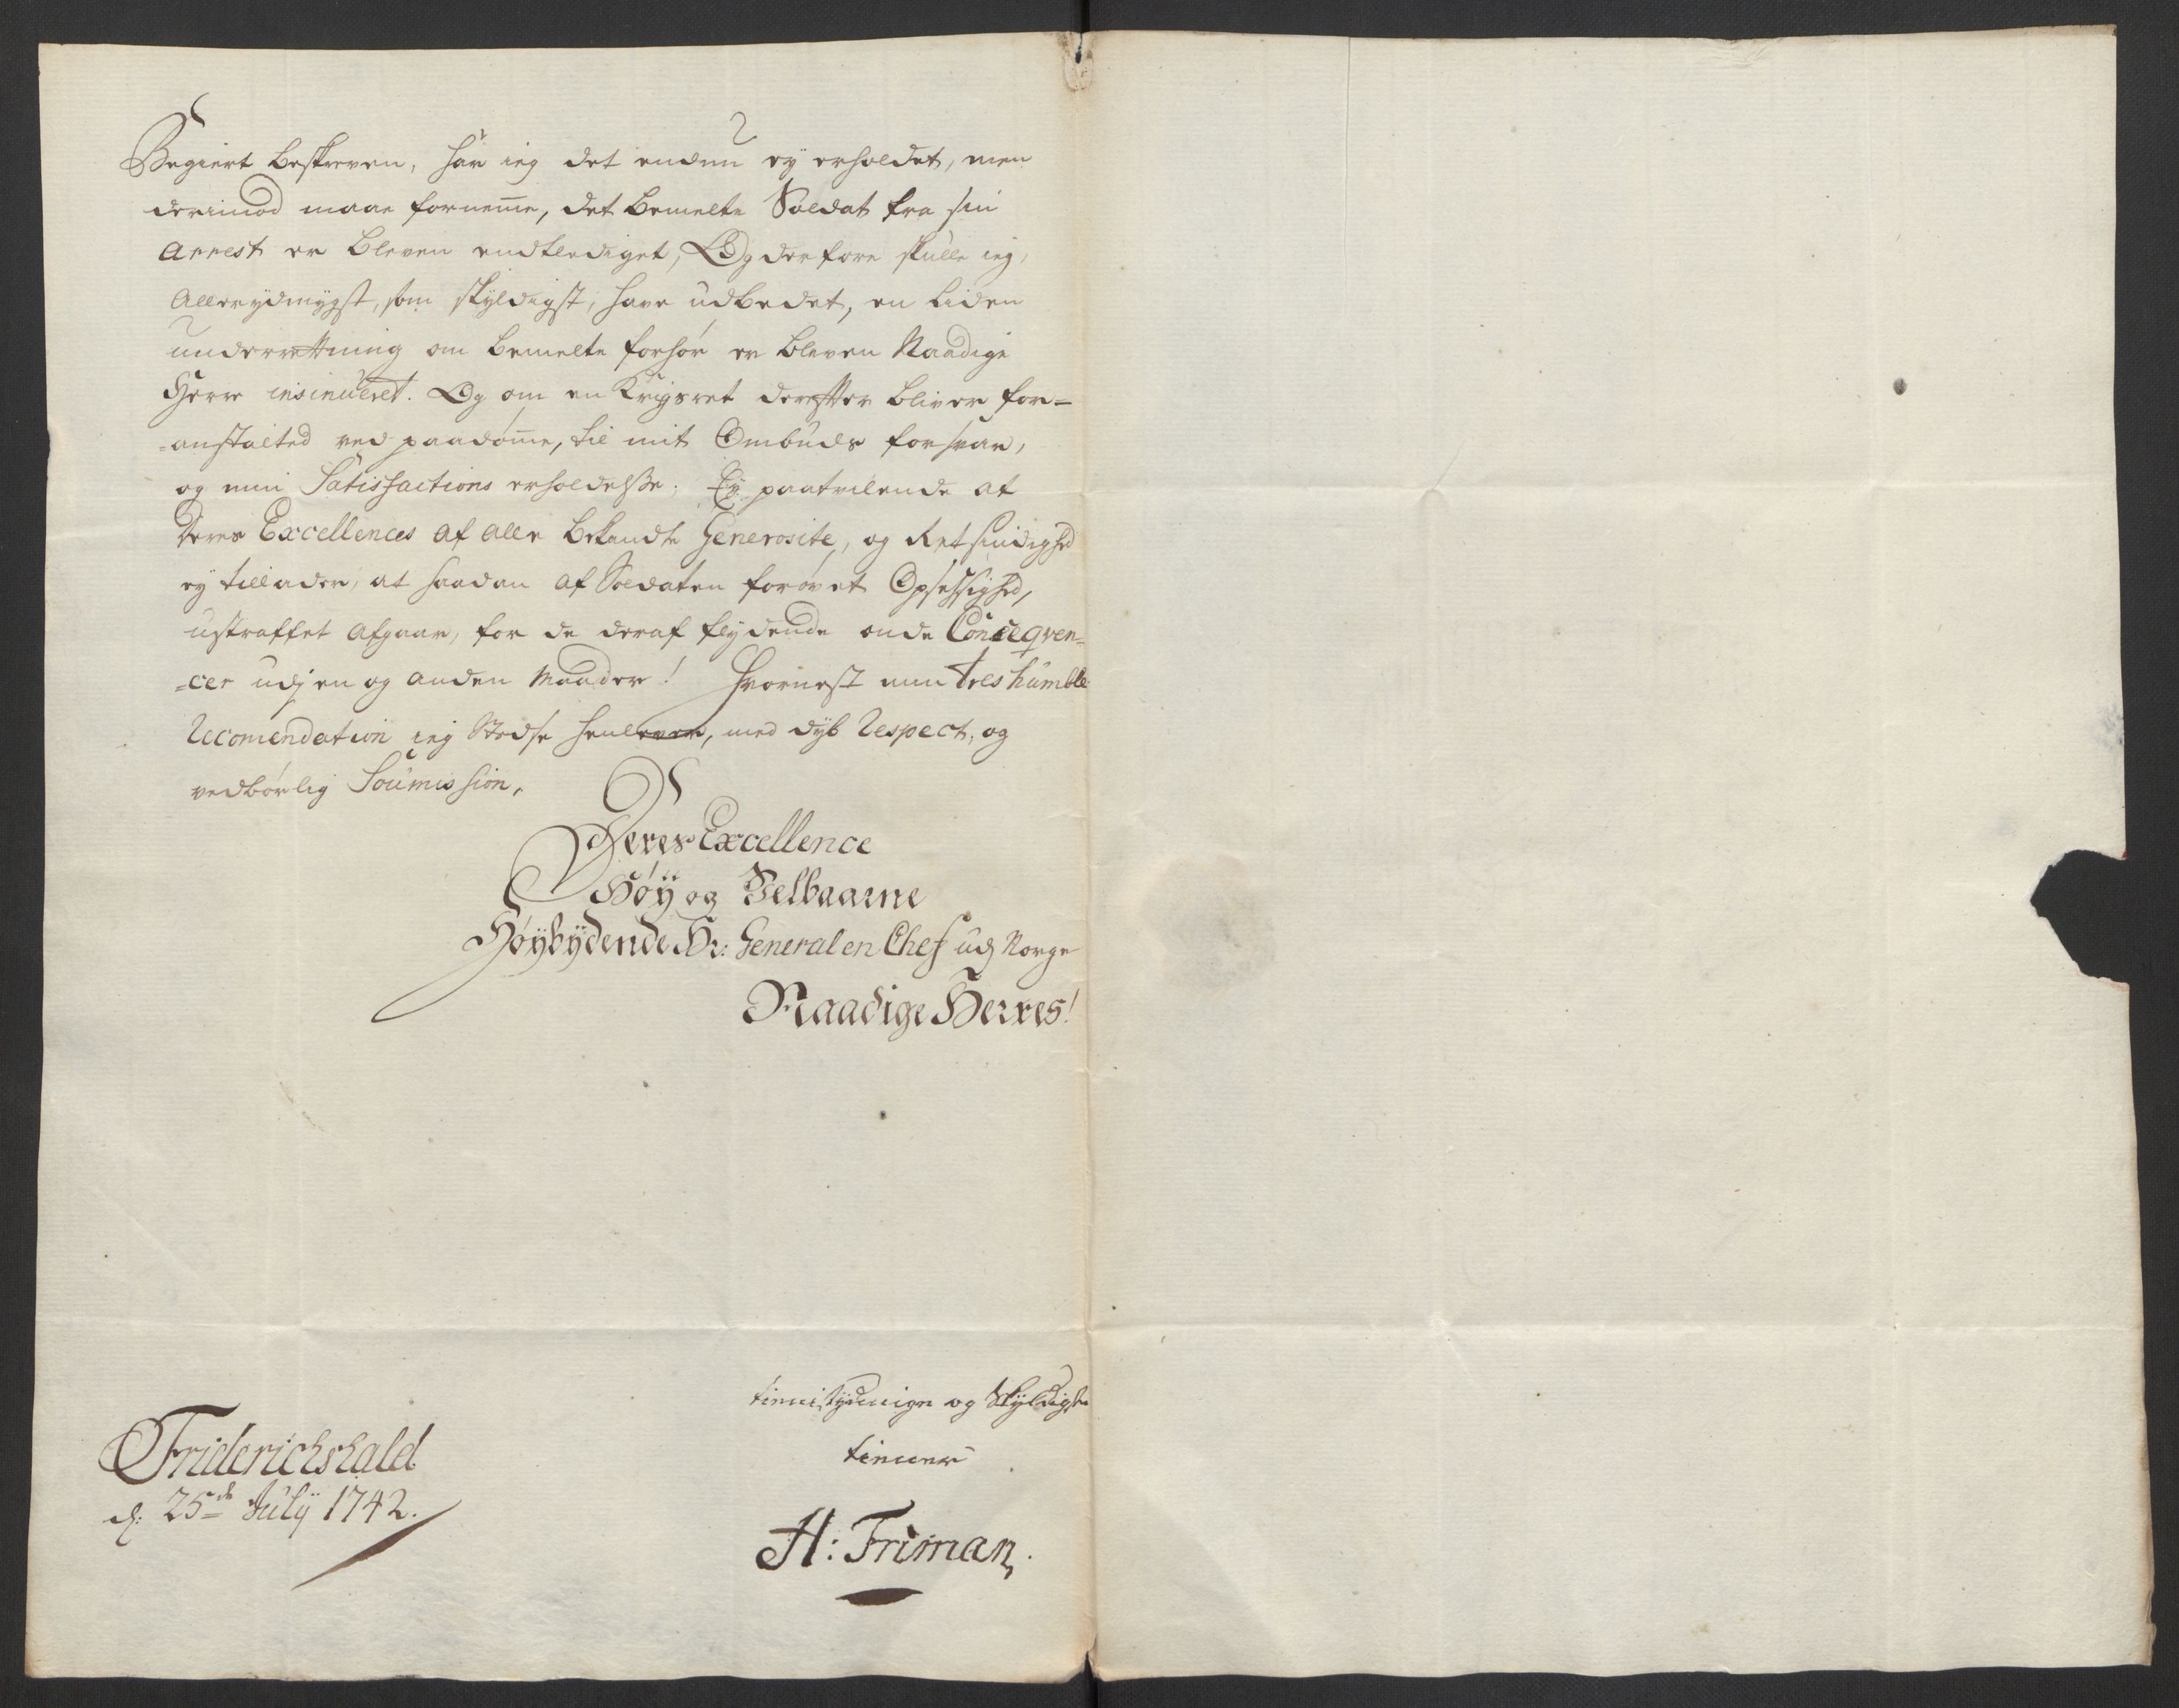 Begiert beskreven, har ieg det endnu ey erholdet, men
derimod maae fornem̄e, det bemelte Soldat fra sin
Arrest er bleven endtlediget, Og derfore skulle ieg,
Allerydmygst, som skyldigst, have udbedet, en liden
underrettning om bemelte forhör er bleven Naadige
Herre insinueret. Og om en Krigsret derefter bliver for=
=anstalted ved paadöm̄e, til mit Ombuds forsvar,
og min Satisfactions erholdelsse; Ey paatvilende at
Deres Excellences af alle bekandte Generosite, og Retsindighed
ey tillader, at saadan af Soldaten forövet Opsetsighed,
ustraffet afgaar, for de deraf flydende onde Conseqven=
=cer udj en og anden Maader! Hvornest min tres humble
Recomendation ieg Stedse henlever, med dyb Respect, og
vedbörlig Soumission,
Deres Excellence
Höÿ og Velbaarne
Höÿbÿdende Hr: General en Chef udj Norge
Naadige Herres!
tienistydmige og Skyldigste
tiener
Friderichshald
d: 25de Julÿ 1742.
H: Friman,